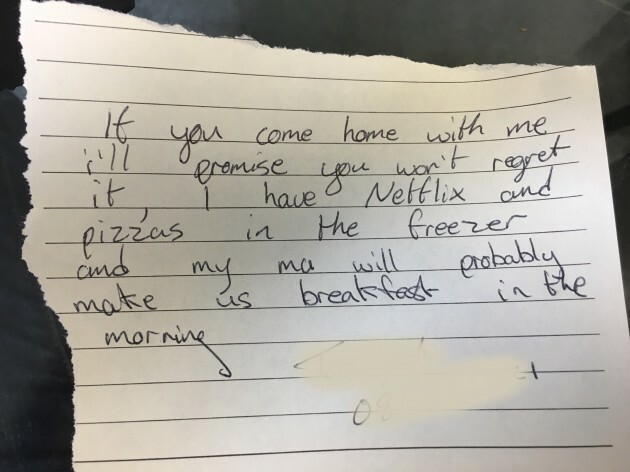 If you come home with me
i'll promise you won't regret
it, I have Netflix and
pizzas in the freezer
and my ma will probably
make us breakfast in the
morning
0